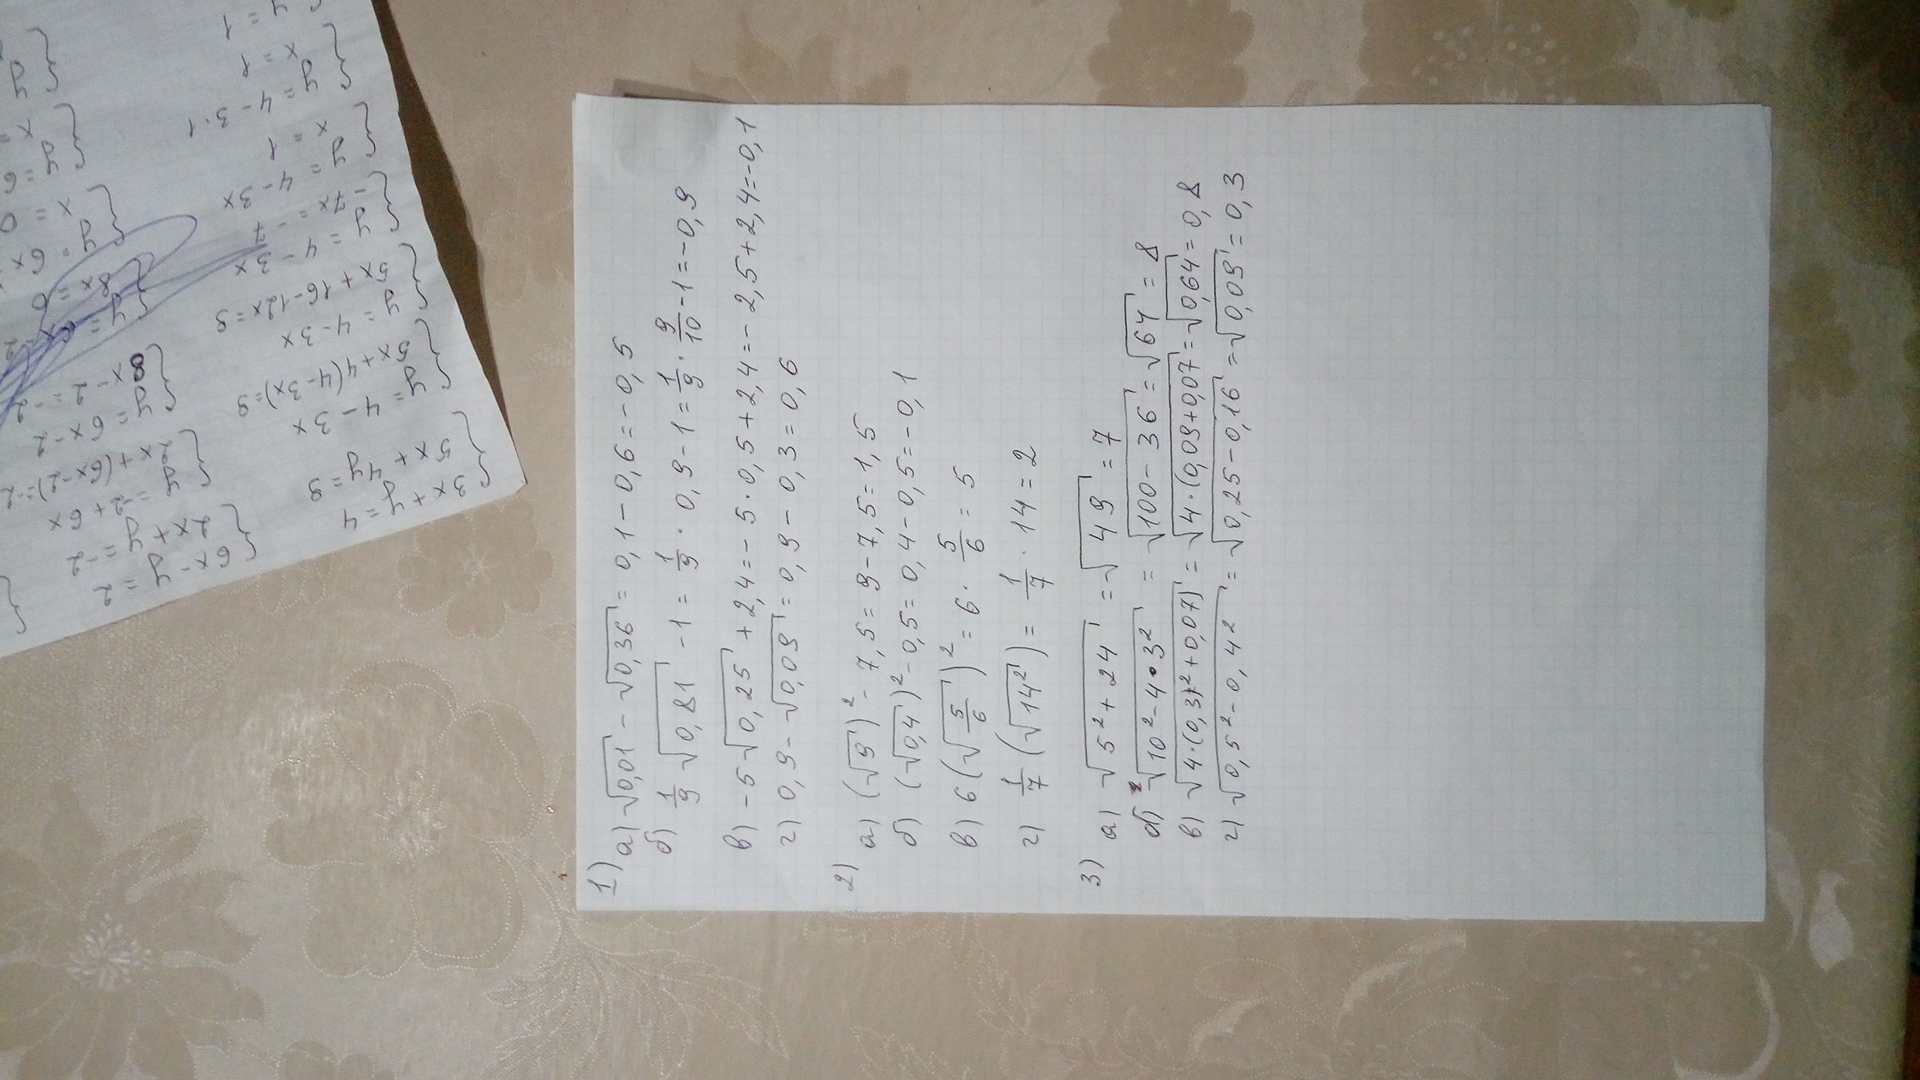 1) а) √0,01 − √0,36 = 0,1 − 0,6 = −0,5
б) 1/9 √0,81 − 1 = 1/9 · 0,9 − 1 = 1/9 · 9/10 − 1 = −0,9
в) −5√0,25 + 2,4 = −5·0,5 + 2,4 = −2,5 + 2,4 = −0,1
г) 0,9 − √0,09 = 0,9 − 0,3 = 0,6
2) а) (√9)² − 7,5 = 9 − 7,5 = 1,5
б) (√0,4)² − 0,5 = 0,4 − 0,5 = −0,1
в) 6(√5/6)² = 6 · 5/6 = 5
г) 1/7 (√14²) = 1/7 · 14 = 2
3) а) √5² + 24 = √49 = 7
б) √10² − 4·3² = √100 − 36 = √64 = 8
в) √4·(0,3)² + 0,07) = √4·(0,09+0,07 = √0,64 = 0,8
г) √0,5² − 0,4² = √0,25 − 0,16 = √0,09 = 0,3
{ 6x − y = 2
2x + y = −2
{ y = −2 + 6x
2x + (6x−2) = −2
{ y = 6x − 2
8x − 2 = −2
8x = 0
x = 0
{ 3x + y = 4
5x + 4y = 9
{ y = 4 − 3x
5x + 4(4−3x) = 9
{ y = 4 − 3x
5x + 16 − 12x = 9
{ y = 4 − 3x
−7x = −7
{ y = 4 − 3x
x = 1
{ y = 4 − 3·1
x = 1
{ y = 1